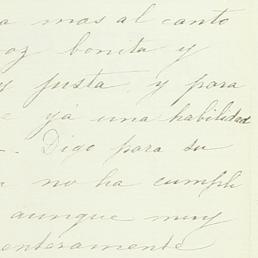 a mas al canto
oz bonita y
y justa, y para
e yá una habilidad
. Digo para su
no ha cumpli
aunque muy
enteramente